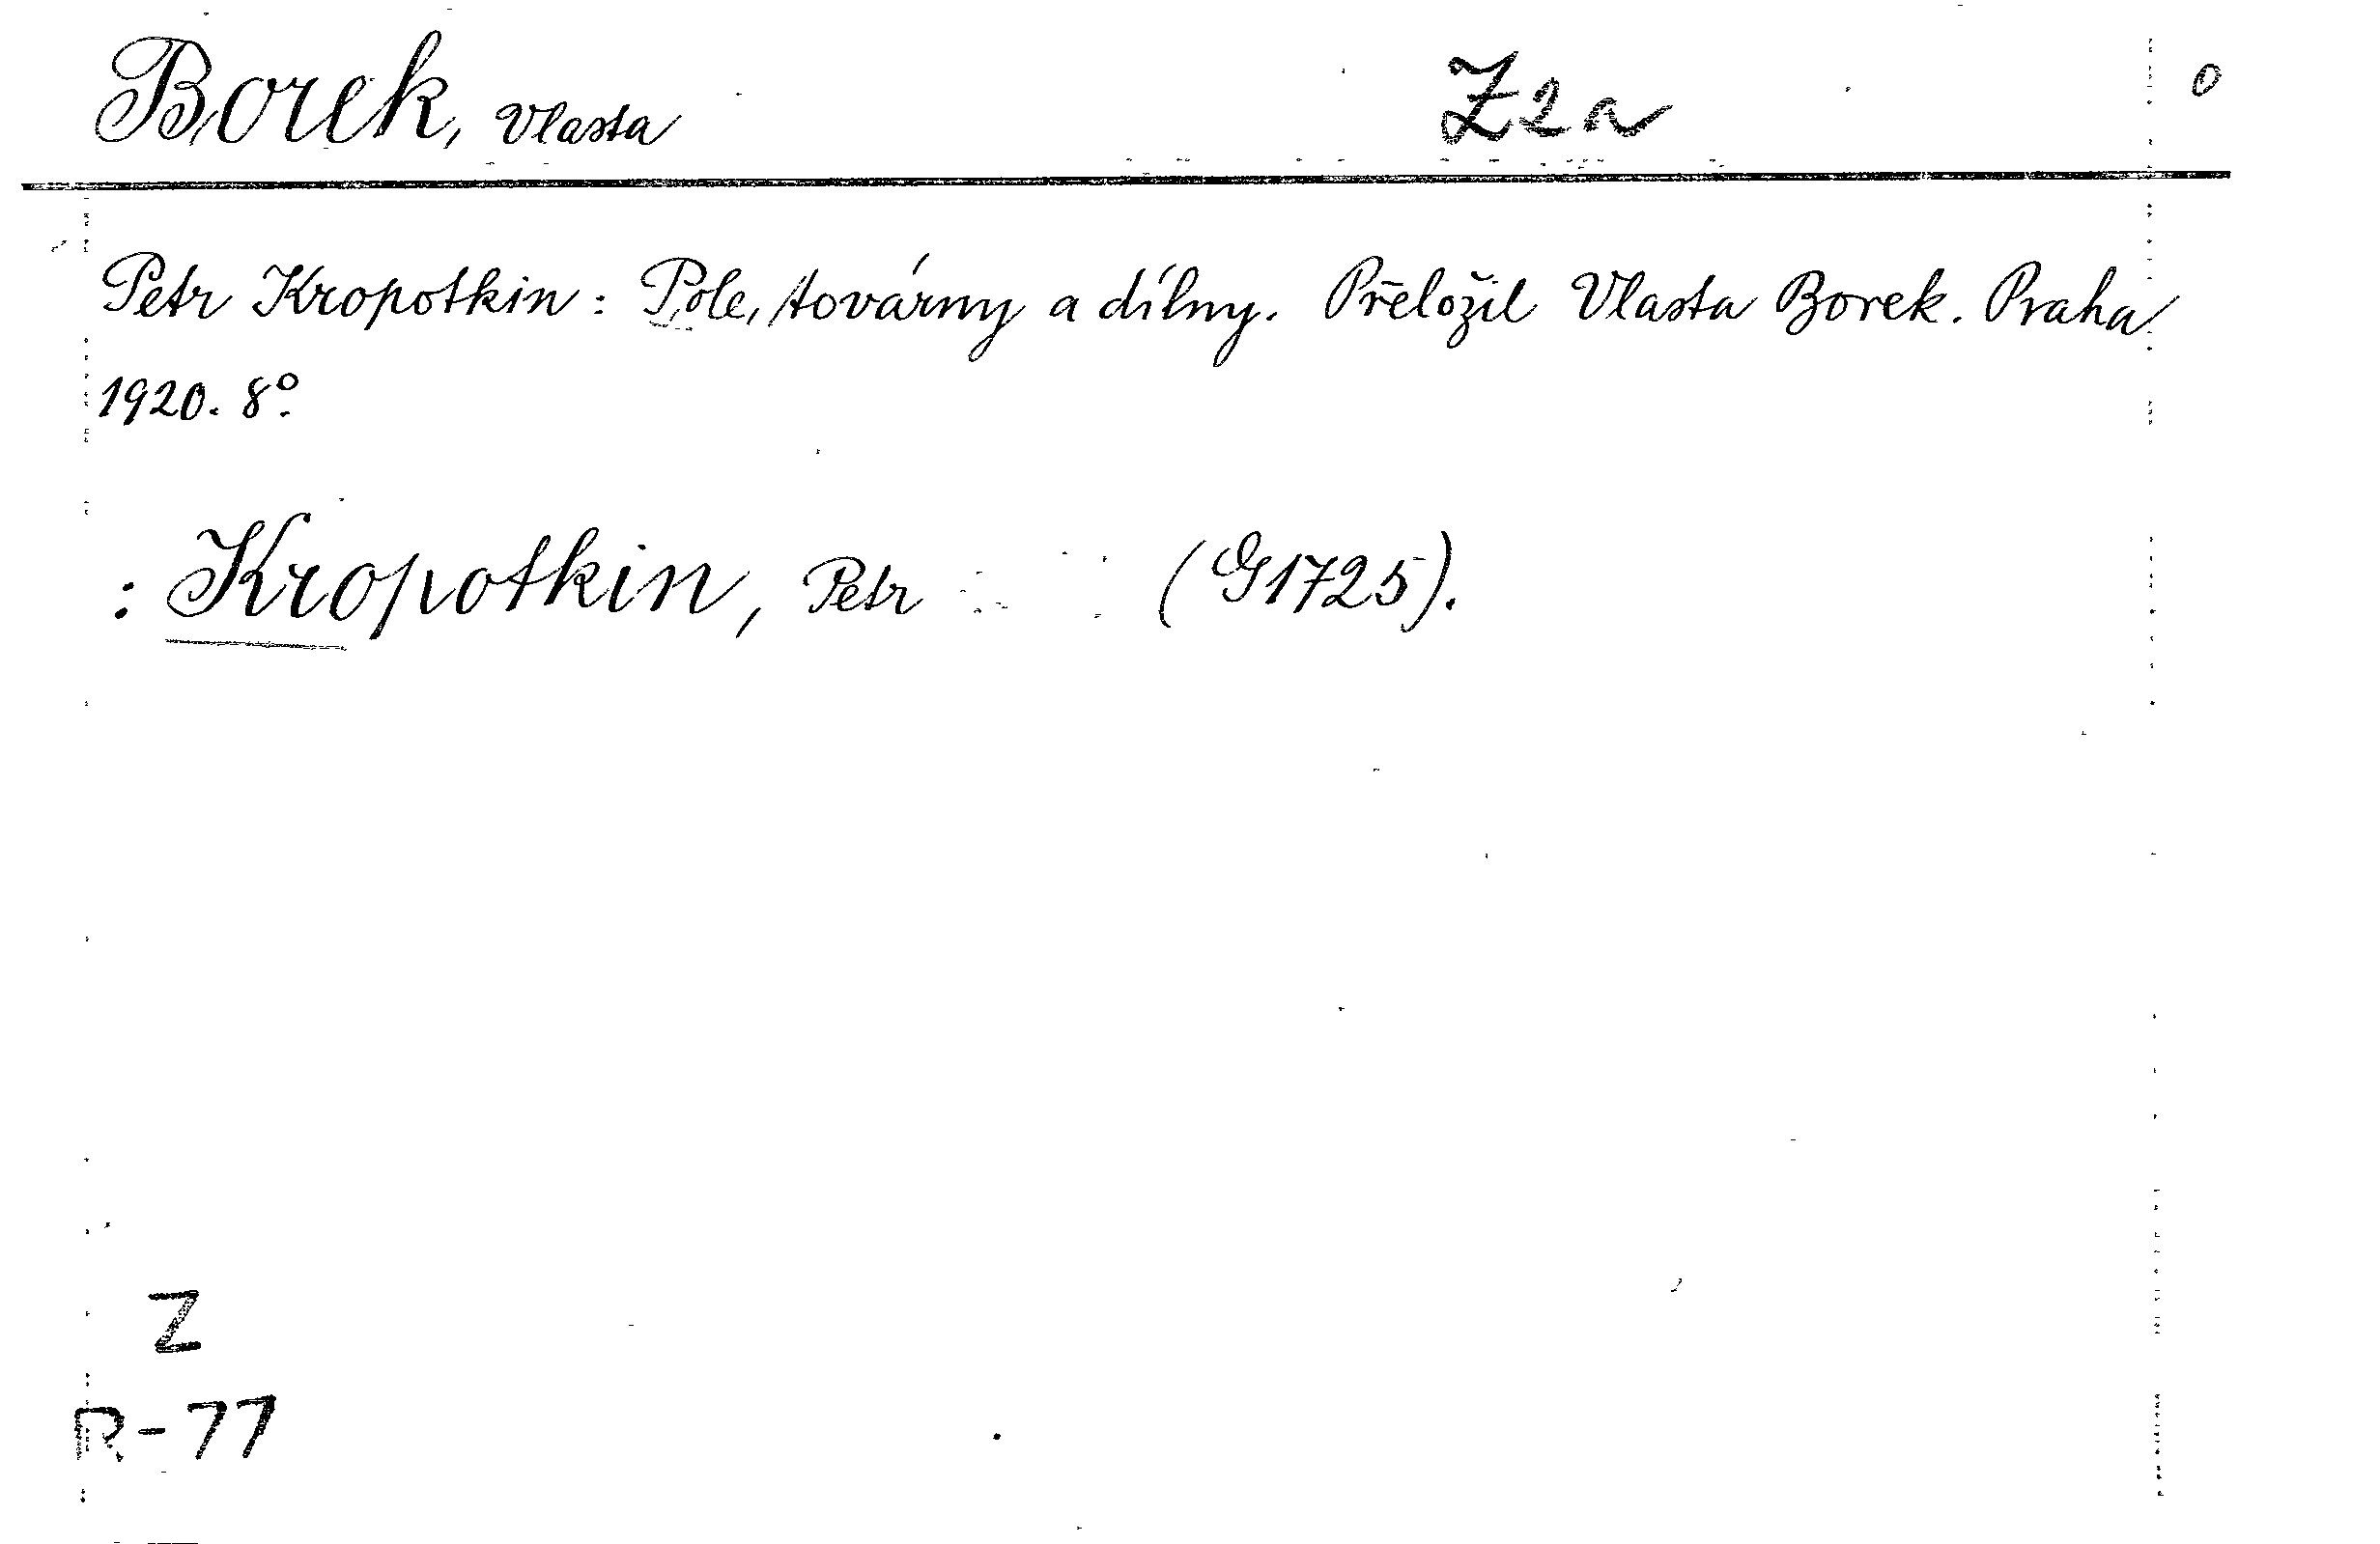 Borek, Vlasta Z2a 0
Petr Kropotkin: Pole, továrny a dílny. Přeložil Vlasta Borek. Praha
1920. 8°.
: Kropotkin, Petr (G1725).
Z
R-77